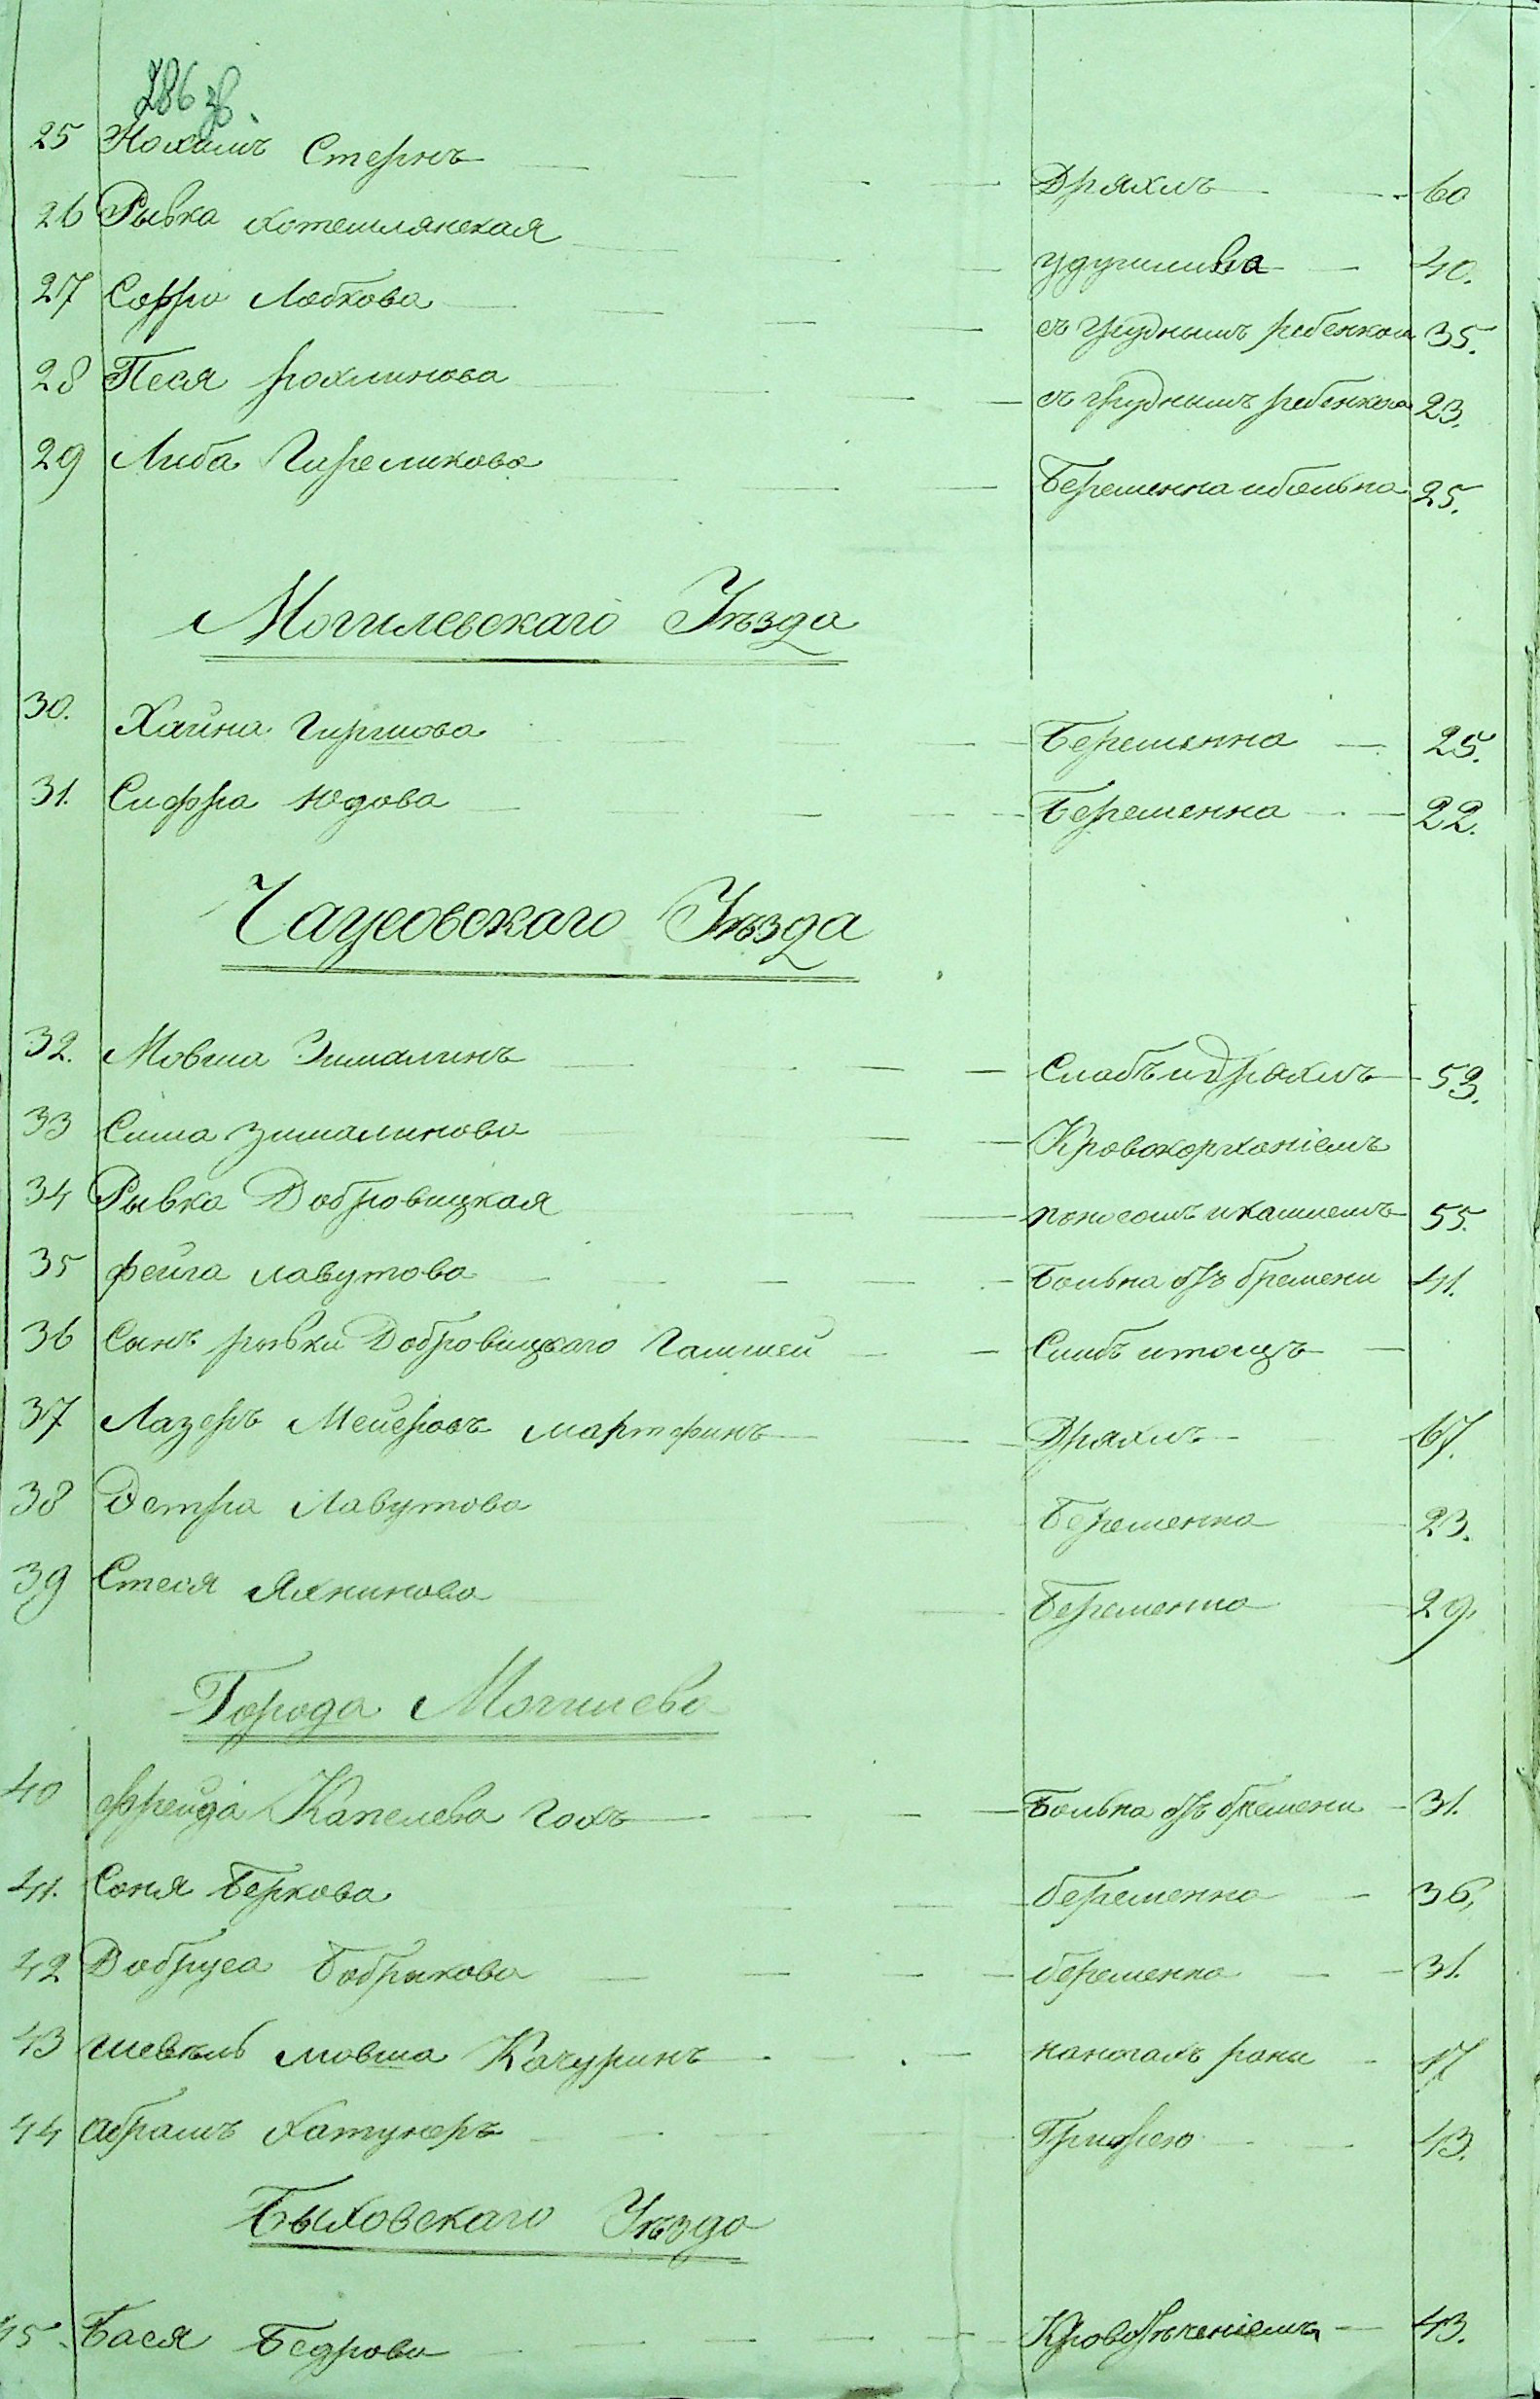 286 зв
25 Нохимъ Стернъ Дряхлъ 60
26 Рывка Хотемлянская удушлива 40.
27 Софра Лобкова съ груднымъ ребенком 35.
28 Песя Рохлинова съ груднымъ ребенком 23.
29 Либа Гиреликова Беременна и больна 25.
Могилевскаго Уѣзда
30. Хайна Гиршова Беременна 25.
31. Сифра Юдова Беременна 22.
Чаусовскаго Уѣзда
32. Мовша Зималинъ Слабъ и дряхлъ 53.
33 Сима Зималинова Кровохорканіемъ
34 Рывка Добровицкая поносомъ и кашлемъ 55.
35 Фейга Лавутова Больна бѣ бремени 41.
36 Сынъ рывки Добровицкаго Слабъ и тощъ
37 Лазеръ Мееровъ Дряхлъ 67.
38 Лавутова Беременна 23.
39 Стеся Яхнинова Беременна 29.
Города Могилева
40 Фрейда Капелева Гохъ Больна бѣ бремени 31.
41. Соня Беркова беременна 36,
42 Добруса Бобрикова беременна 31.
43 шевель мовша Качуринъ на ногахъ раны 17
44 абрамъ Хатунеръ 43.
Быховскаго Уѣзда
45. Бася Бедрова Кровотеченіемъ 43.